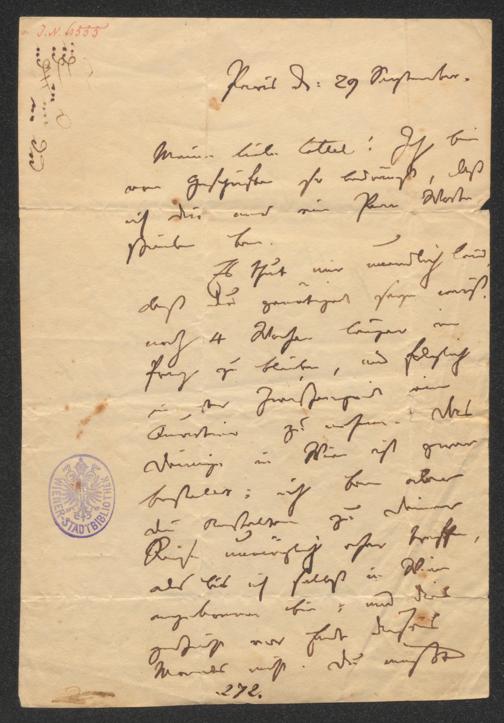 J.N. 4555
Paris d: 29 September.
Meine liebe ! Ich bin
von Geschäften so bedrängt, daß
ich dir nur ein Paar Worte
schreiben kan.
Es thut mir unendlich leid,
daß du genötigt seyn wirst
noch 4 Wochen länger in
Prag zu bleiben, und folglich
in der Zwischenzeit ein
Quartier zu nehmen. Das
deinige in Wien ist zwar
bestellt; ich kan aber
die Anstalten zu deiner
Reise unmöglich eher treffen,
als bis ich selbst in Wien
angekommen bin; und dies
geschieht vor Ende dieses
Monats nicht. Du mußt
.272.
WIENER-STADTBIBLIOTHEK